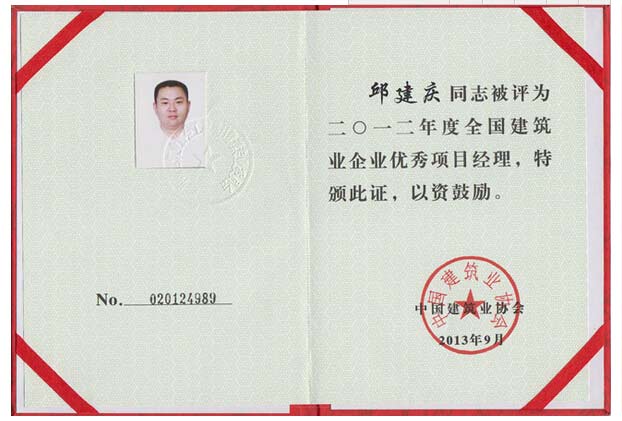 No. 020124989
邱建庆同志被评为
二〇一二年度全国建筑
业企业优秀项目经理，特
颁此证，以资鼓励。
中国建筑业协会
中国建筑业协会
2013年9月